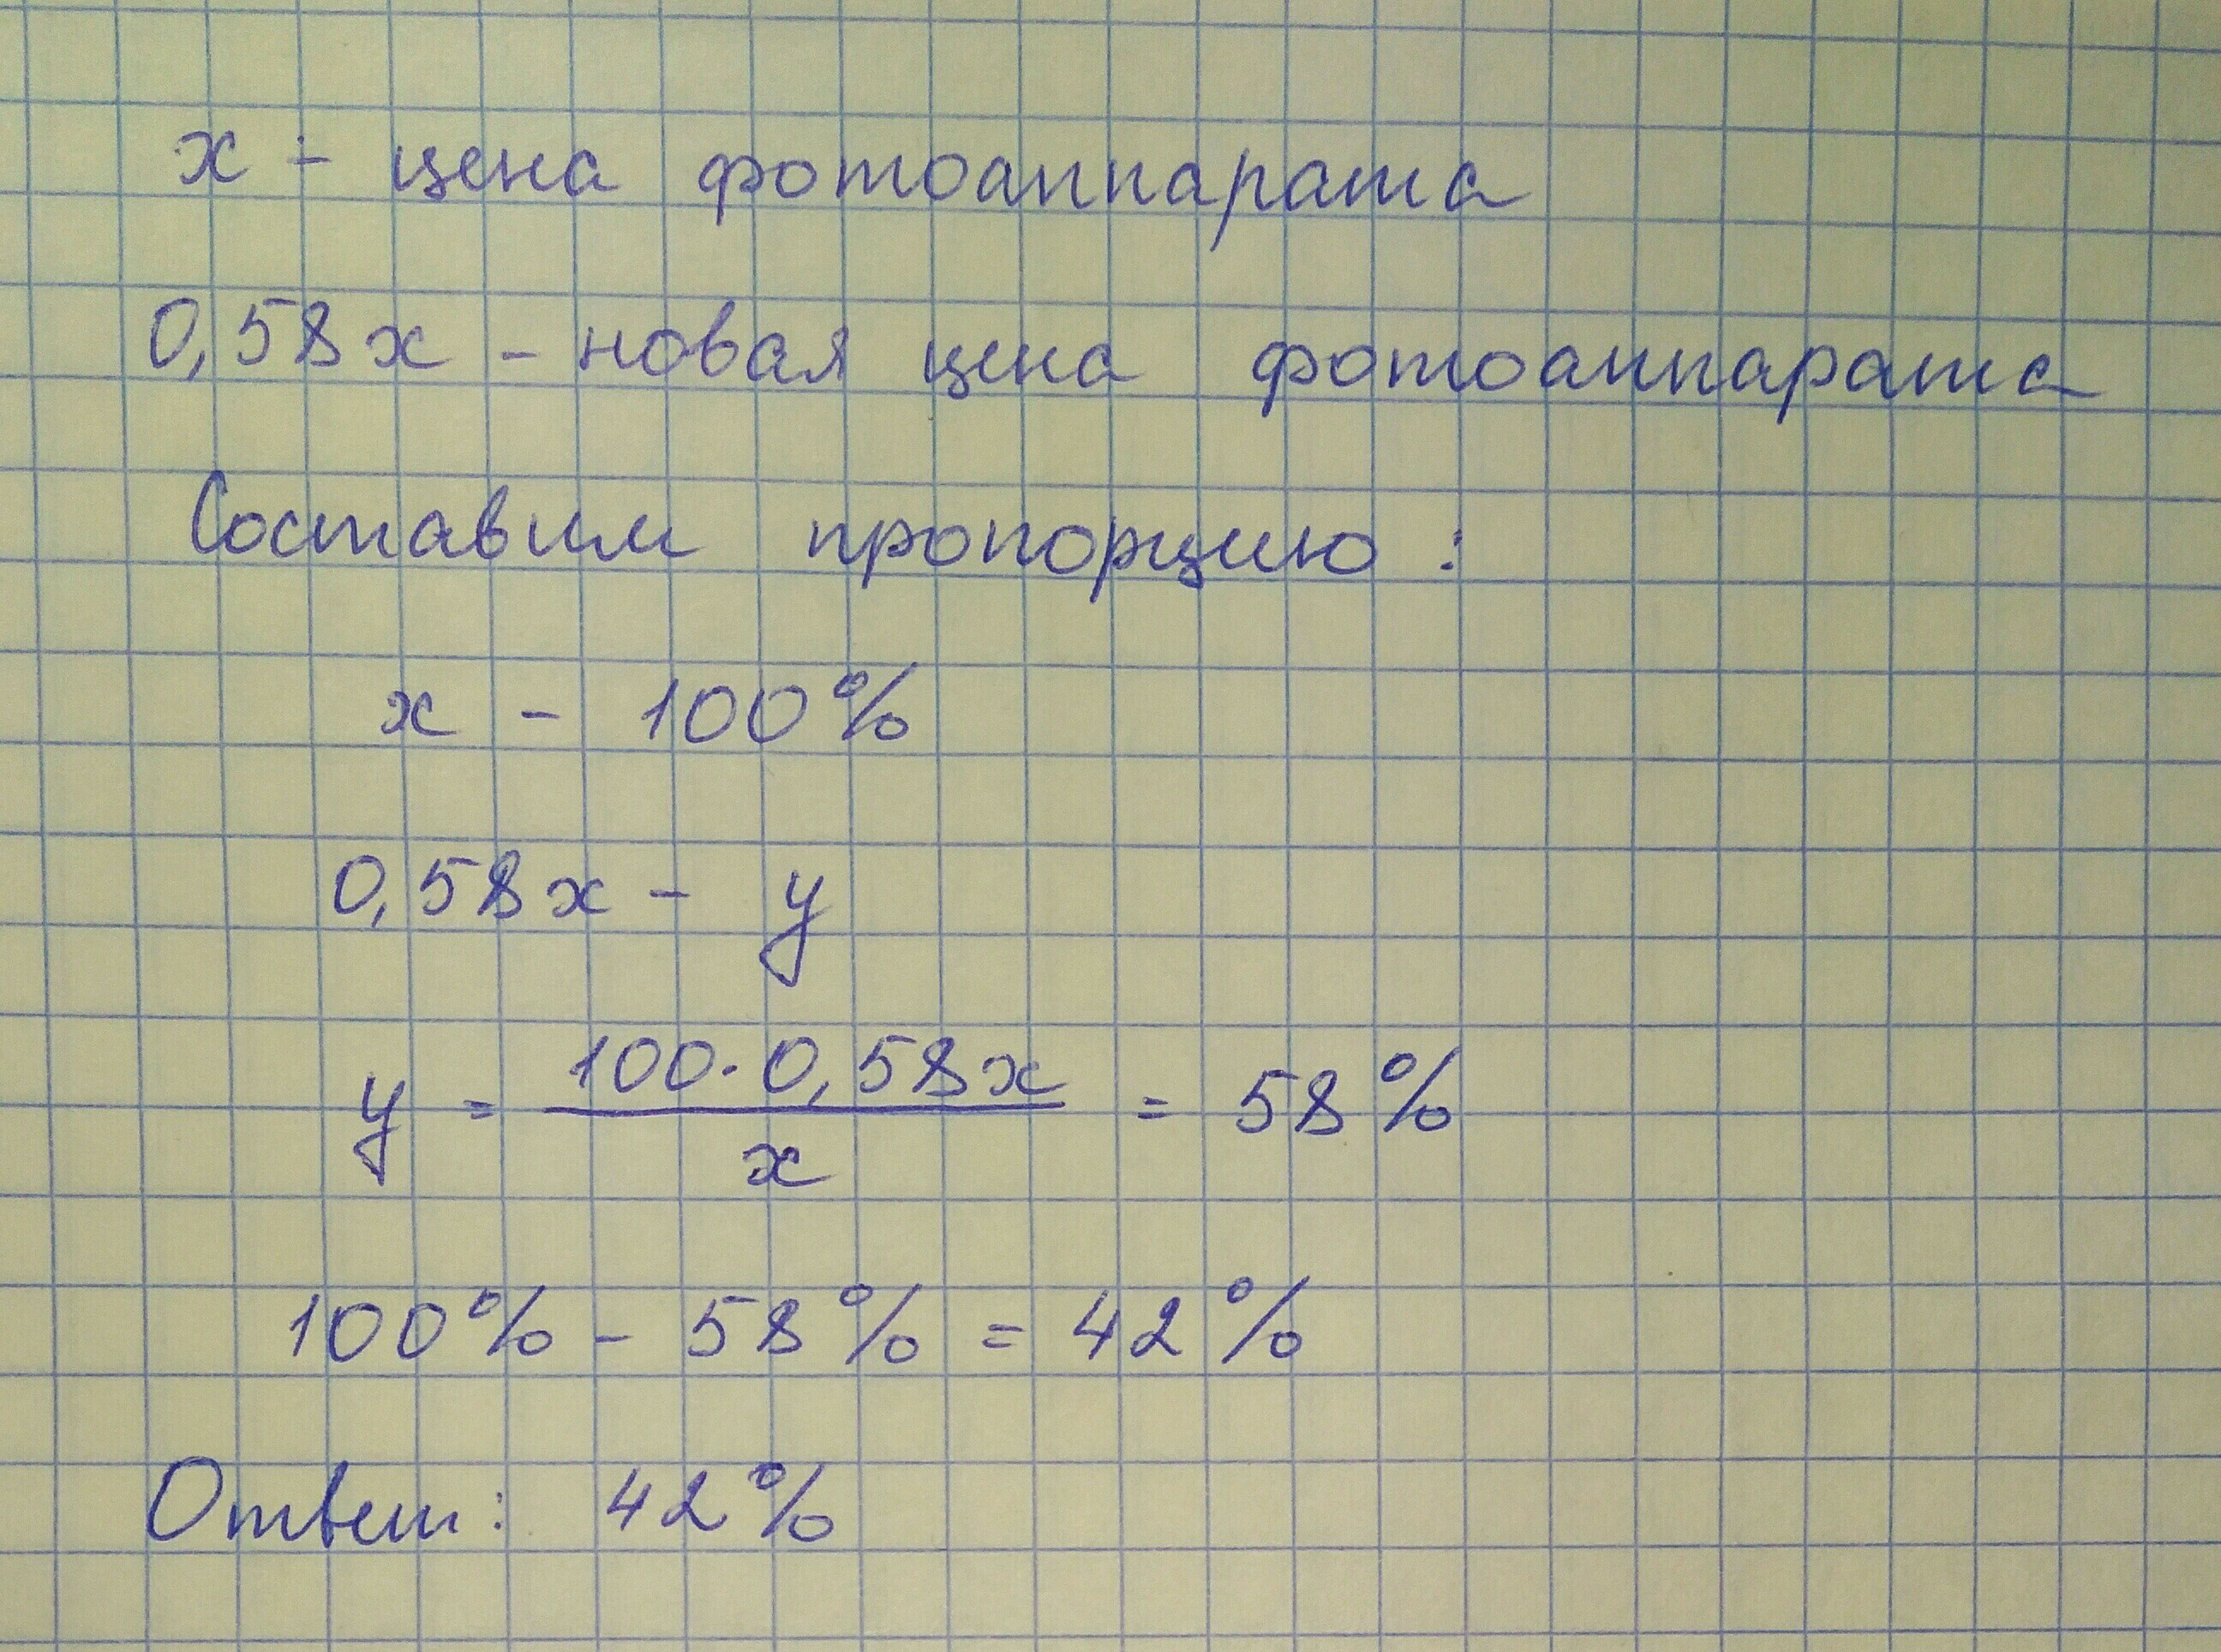 x - цена фотоаппарата
0,58x - новая цена фотоаппарата
Составим пропорцию:
x - 100%
0,58x - y
y = 100·0,58x / x = 58%
100% - 58% = 42%
Ответ: 42%